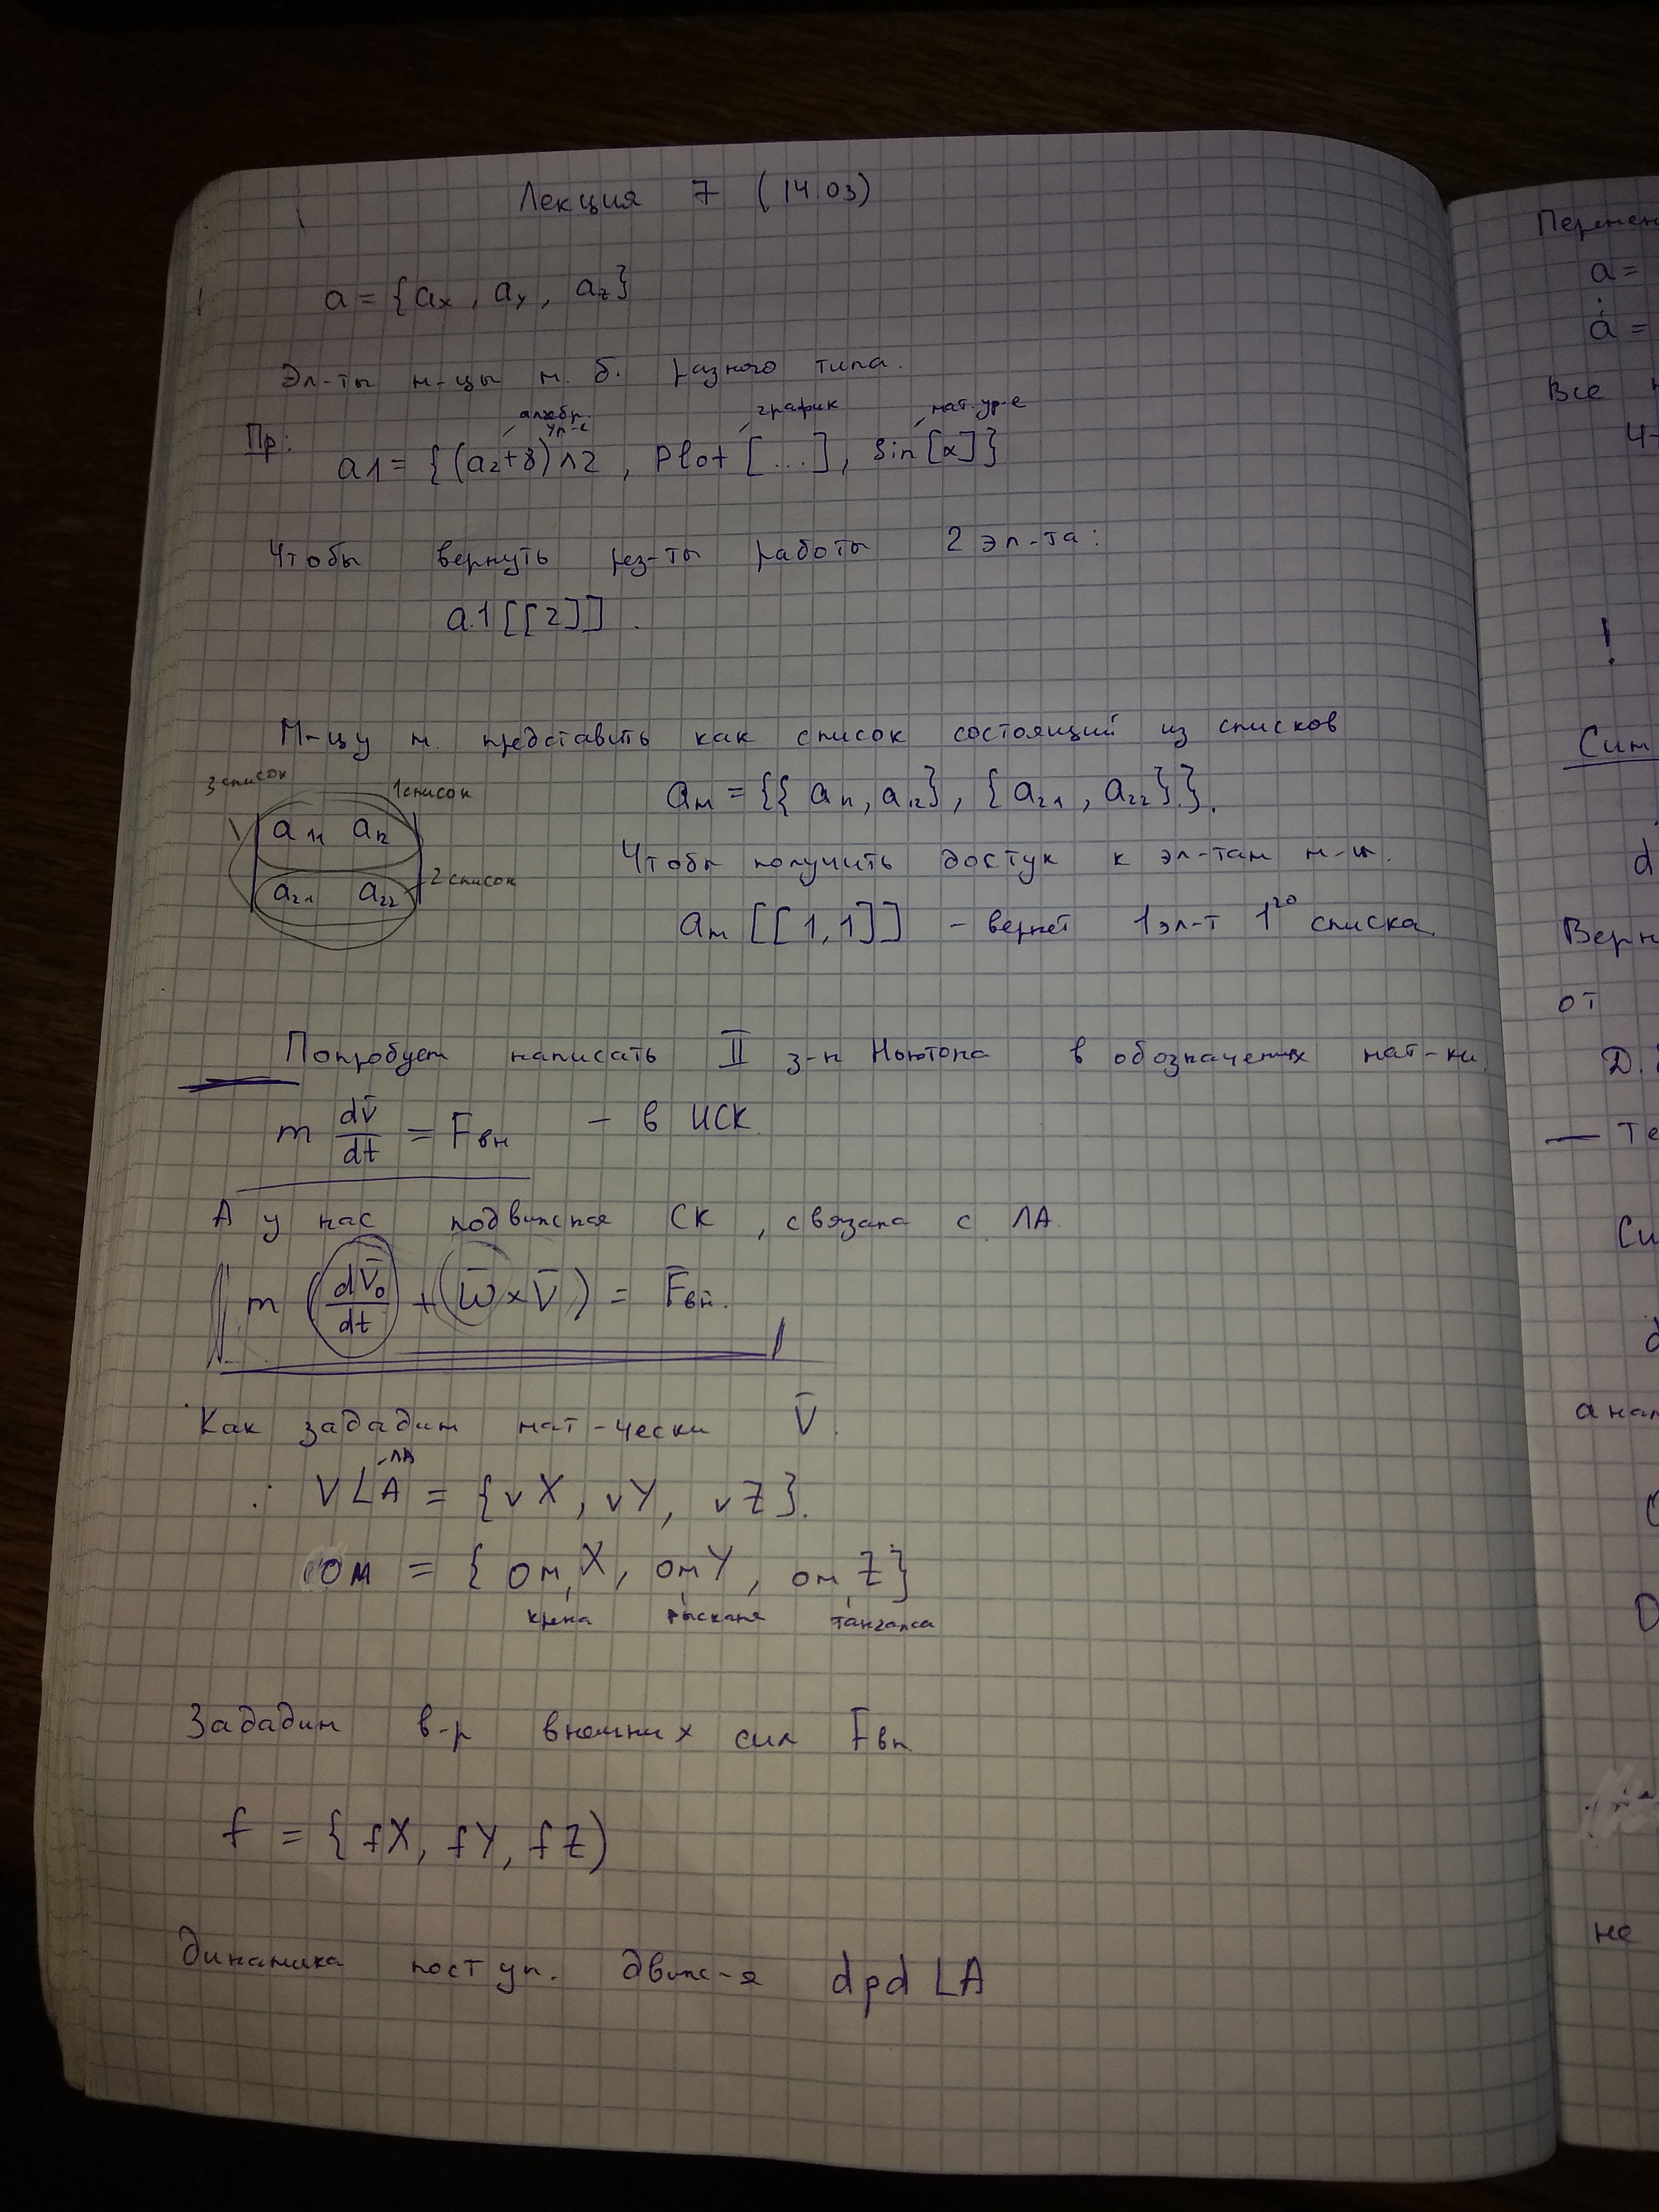 Лекция 7 (14.03)
a = {ax, ay, az}
Эл-ты м-цы м. б. разного типа.
алгебр. ур-е график мат. ур-е
Пр: a1 = {(a2+8)^2, Plot [...], Sin [x]}
Чтобы вернуть рез-ты работы 2 эл-та:
a1[[2]].
М-цу м. представить как список состоящий из списков
3 список 1 список
am = {{a11, a12}, {a21, a22}}.
a11 a12
Чтобы получить доступ к эл-там м-цы.
a21 a22 2 список
am [[1,1]] - вернет 1 эл-т 1го списка.
Попробуем написать II з-н Ньютона в обозначениях мат-ки.
m dv̄/dt = Fвн - в ИСК
А у нас подвижная СК, связана с ЛА.
m (dV̄o/dt + (ω̄ × V̄) = F̄вн.
Как зададим мат-чески V̄.
ЛА
VLA = {vX, vY, vZ}.
ом = {омX, омY, омZ}
крена рыскания тангажа
Зададим в-р внешних сил Fвн
f = {fX, fY, fZ)
Динамика поступ. движ-я dpd LA
Перемен
a =
ȧ =
Все
ч-
!
Сим
d
Верн
от
D.
— Те
Си
анал
не